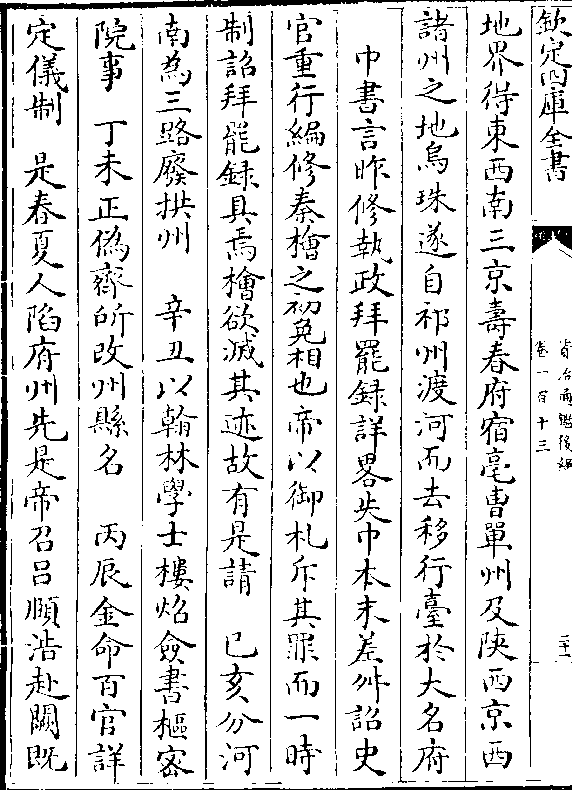 欽定四庫全書
資治通鑑後編
卷一百十三
地界得東西南三京壽春府宿亳曹單州及陜西京西
諸州之地烏珠遂自祁州渡河而去移行臺於大名府
中書言昨修執政拜罷録詳畧失中本末差舛詔史
官重行編修秦檜之初免相也帝以御札斥其罪而一時
制詔拜罷録具焉檜欲滅其迹故有是請　己亥分河
南為三路廢拱州　辛丑以翰林學士樓炤僉書樞密
院事　丁未正偽齊所改州縣名　丙辰金命百官詳
定儀制　是春夏人陷府州先是帝召吕頤浩赴闕既